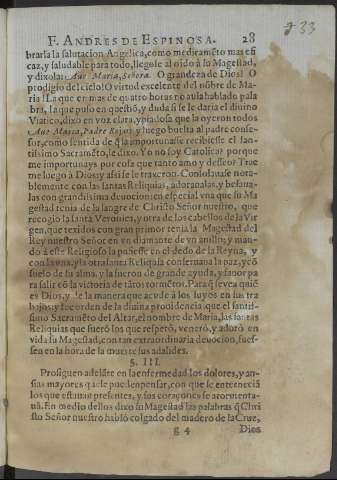 F. ANDRES DE ESPINOSA. 28
33
brarla la salutacion Angelica, como medicamẽto mas efi
caz, y saludable para todo, llegole al oido à su Magestad,
y dixola: Aue Maria, Señora. O grandeza de Dios! O
prodigio del cielo! O virtud excelente del nõbre de Ma-
ria! La que en mas de quatro horas no auia hablado pala
bra, la que puso en questiõ, y duda si se le daria el diuino
Viatico, dixo en voz clara, y piadosa que la oyeron todos
Aue Maria, Padre Rojas y luego buelta al padre confes-
sor, como sentida de q̃ la importunasse recibiesse el San-
tissimo Sacramẽto, le dixo. Yo no soy Catolica? porque
me importunays por cosa que tanto amo y desseo? Trae
me luego à Dios y assi se le traxeron. Consolauase nota-
blemente con las santas Reliquias, adoraualas, y besaua-
las con grandissima deuocion en especial vna que su Ma
gestad tenia de la sangre de Christo Señor nuestro, que
recogio la santa Veronica, y otra de los cabellos de la Vir
gen, que texidos con gran primor tenia la Magestad del
Rey nuestro Señor en vn diamante de vn anillo; y man-
dò à este Religioso la pusiesse en el dedo de la Reyna, y
con la vna, y la otra santa Reliquia conseruaua la paz, y cõ
suelo de su alma, y la fueron de grande ayuda, y fauor pa
ra salir cõ la victoria de tãtos tormẽtos. Para q̃ se vea quiẽ
es Dios, y de la manera que acude à los suyos en sus tra
bajos: y socorden de la diuina prouidencia que el santis-
simo Sacramẽto del Altar, el nombre de Maria, las santas
Reliquias que fuerõ los que respetò, venerò, y adorò en
vida su Magestad, con tan extraordinaria deuocion, fues-
sen en la hora de la muerte sus adalides.
§. III.
Prosiguen adelãte en la enfermedad los dolores, y an-
sias mayores que se pueden pensar, con que se enternecia
los que estauan presentes, y sus coraçones se atormenta-
uã. En medio dellos dixo su Magestad las palabras q̃ Chri
sto Señor nuestro hablò colgado del madero de la Cruz,
g 4 Dios